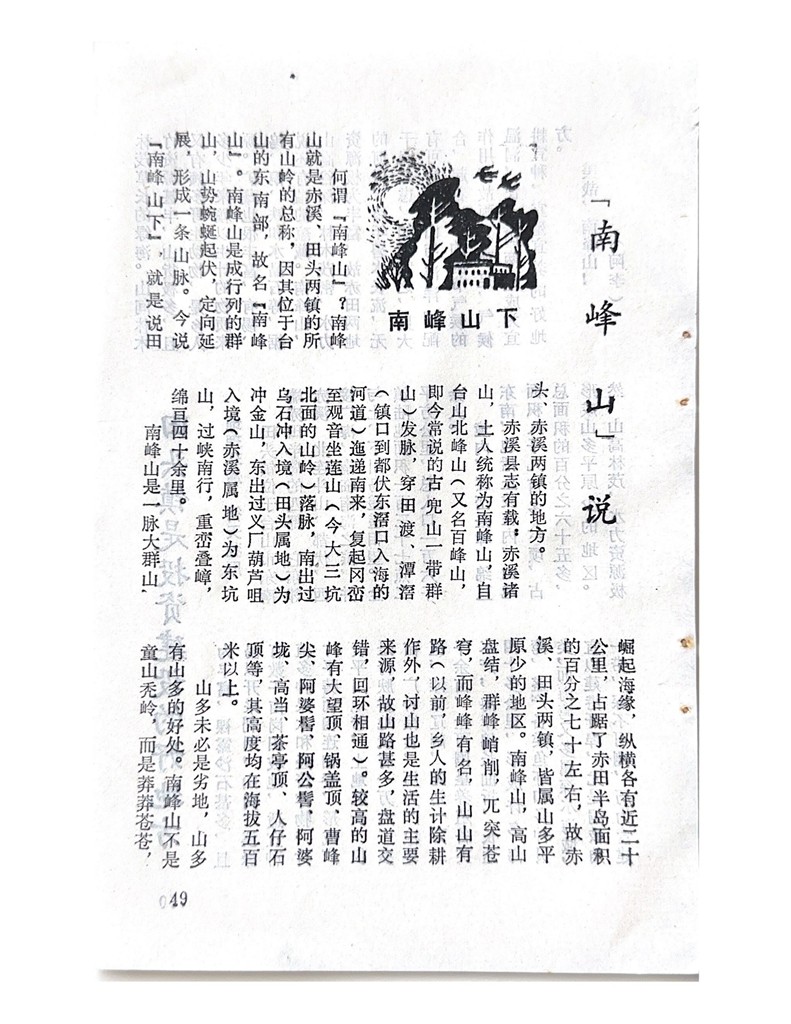 「南峰山」说
南峰山下
何谓『南峰山』？南峰
山就是赤溪、田头两镇的所
有山岭的总称，因其位于台
山的东南部，故名『南峰
山』。南峰山是成行列的群
山，山势蜿蜒起伏，定向延
展，形成一条山脉。今说
『南峰山下』，就是说田
头、赤溪两镇的地方。
赤溪县志有载：赤溪诸
山，土人统称为南峰山，自
台山北峰山（又名百峰山，
即今常说的古兜山一带群
山）发脉，穿田渡、潭滘
（镇口到都伏东滘口入海的
河道）迤递南来，复起冈峦
至观音坐莲山（今大三坑
北面的山岭）落脉，南出过
乌石冲入境（田头属地）为
冲金山，东出过义厂葫芦咀
入境（赤溪属地）为东坑
山，过峡南行，重峦叠嶂，
绵亘四十余里。
南峰山是一脉大群山，
崛起海缘，纵横各有近二十
公里，占踞了赤田半岛面积
的百分之七十左右，故赤
溪、田头两镇，皆属山多平
原少的地区。南峰山，高山
盘结，群峰峭削，兀突苍
穹，而峰峰有名，山山有
路（以前，乡人的生计除耕
作外，讨山也是生活的主要
来源，故山路甚多，盘道交
错，平回环相通）。较高的山
峰有大望顶、锅盖顶、曹峰
尖、阿婆髻、阿公髻、阿婆
垅、高当、茶亭顶、人仔石
顶等，其高度均在海拔五百
米以上。
山多未必是劣地，山多
有山多的好处。南峰山不是
童山秃岭，而是莽莽苍苍，
49